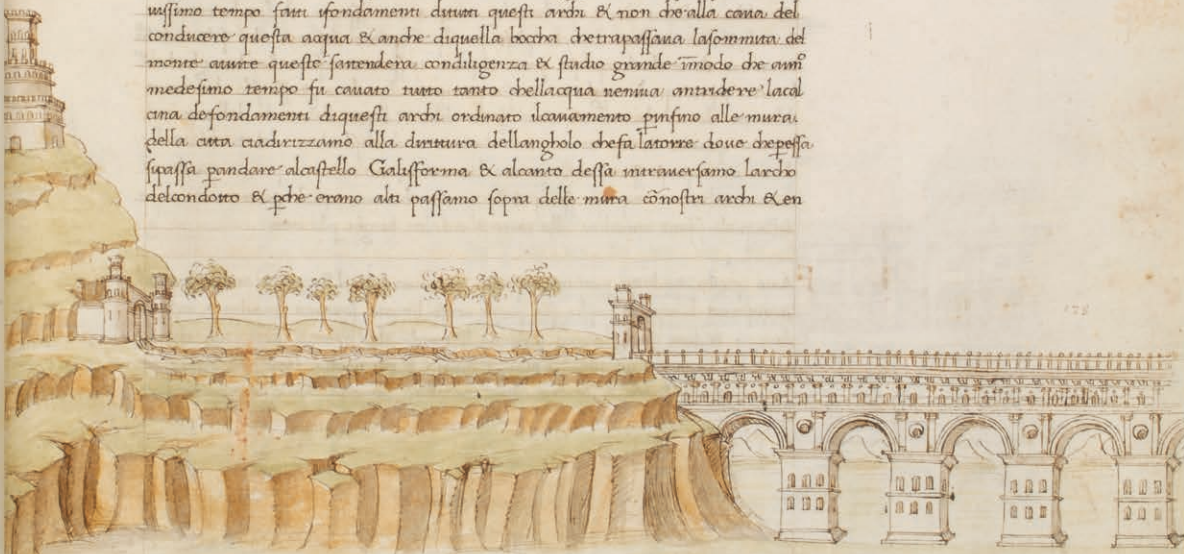 uissimo tempo fatti ifondamenti ditutti questi archi & non che alla caua del
conducere questa acqua & anche diquella boccha chetrapassaua lasommita del
monte atutte queste sattendeua condiligenza & studio grande īmodo che aun
medesimo tempo fu cauato tutto tanto chellacqua ueniua antridere lacal
cina defondamenti diquesti archi ordinato ilcauamento p̄infino alle mura
della citta ciadirizzamo alla dirittura dellangholo chefa latorre doue chep̄essa
sipassa p̄andare alcastello Galisforma & alcanto dessa intrauersamo larcho
delcondotto & p̄che erano alti passamo sopra delle mura cō nostri archi & en